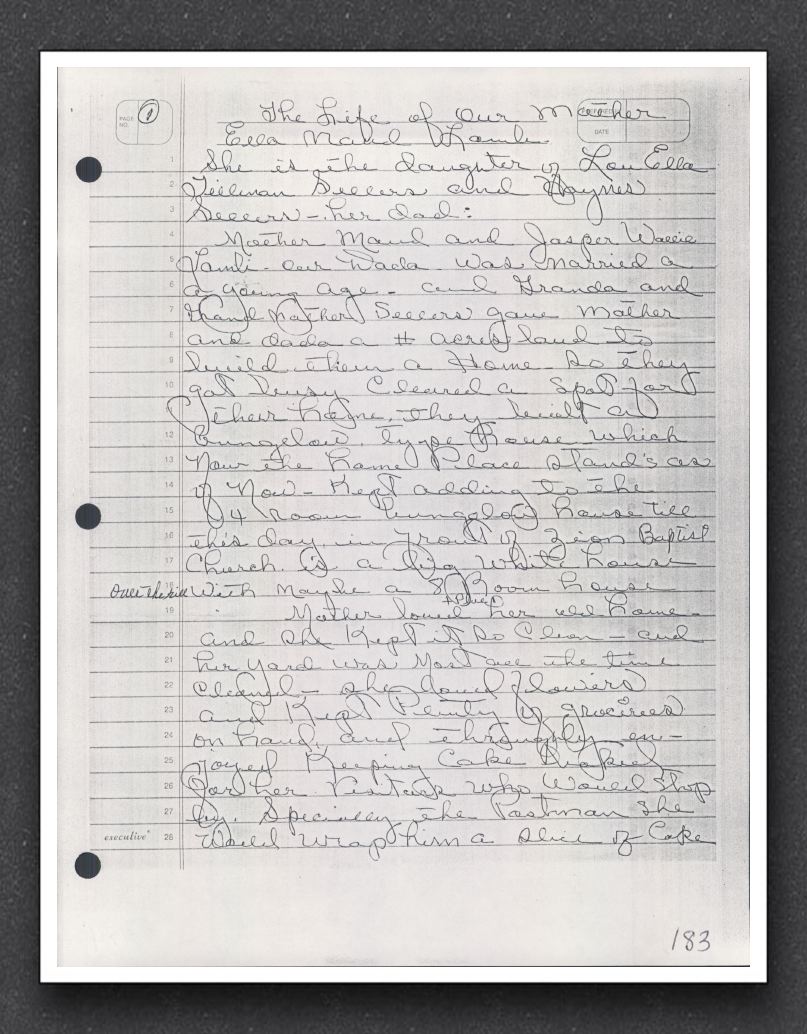 PAGE NO. 1
The Life of Our Mother
DATE
Ella Maud Lamb
1 She is the daughter of Lou Ella
2 Tillman Sellers and Haynes
3 Sellers - her dad:
4 Mother Maud and Jasper Wallie
5 Lamb - our Dada - was married a
6 a young age - and Granda and
7 Grand Mother Sellers gave Mother
8 and dada a # acres land to
9 build them a Home - So they
10 got busy Cleared a Spot for
their home, they built a
12 bungelow type house which
13 Now the home Place stand's as
14 of Now - Kept adding to the
15 4 room bungelow house till
16 this day in front of Zion Baptist
17 Church. is a big White house
over the hill With Maybe a 8 Room house
19 Mother loved her old home -
20 and she Kept it so Clean - and
21 her yard was Most all the time
22 Cleaned - she loved flowers
23 and Kept Plenty of groceires
24 on hand, and throughly en-
25 joyed Keeping Cake Baked
26 for her Visitors who Would Stop
27 by. Specially the Postman She
executive 28 Would wrap him a slice of Cake
183